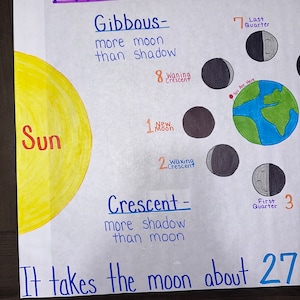 Gibbous-
more moon
than shadow
7 Last
Quarter
8 Waning
Crescent
You Are Here
Sun
1 New
Moon
2 Waxing
Crescent
Crescent-
more shadow
than moon
First
Quarter 3
It takes the moon about 27